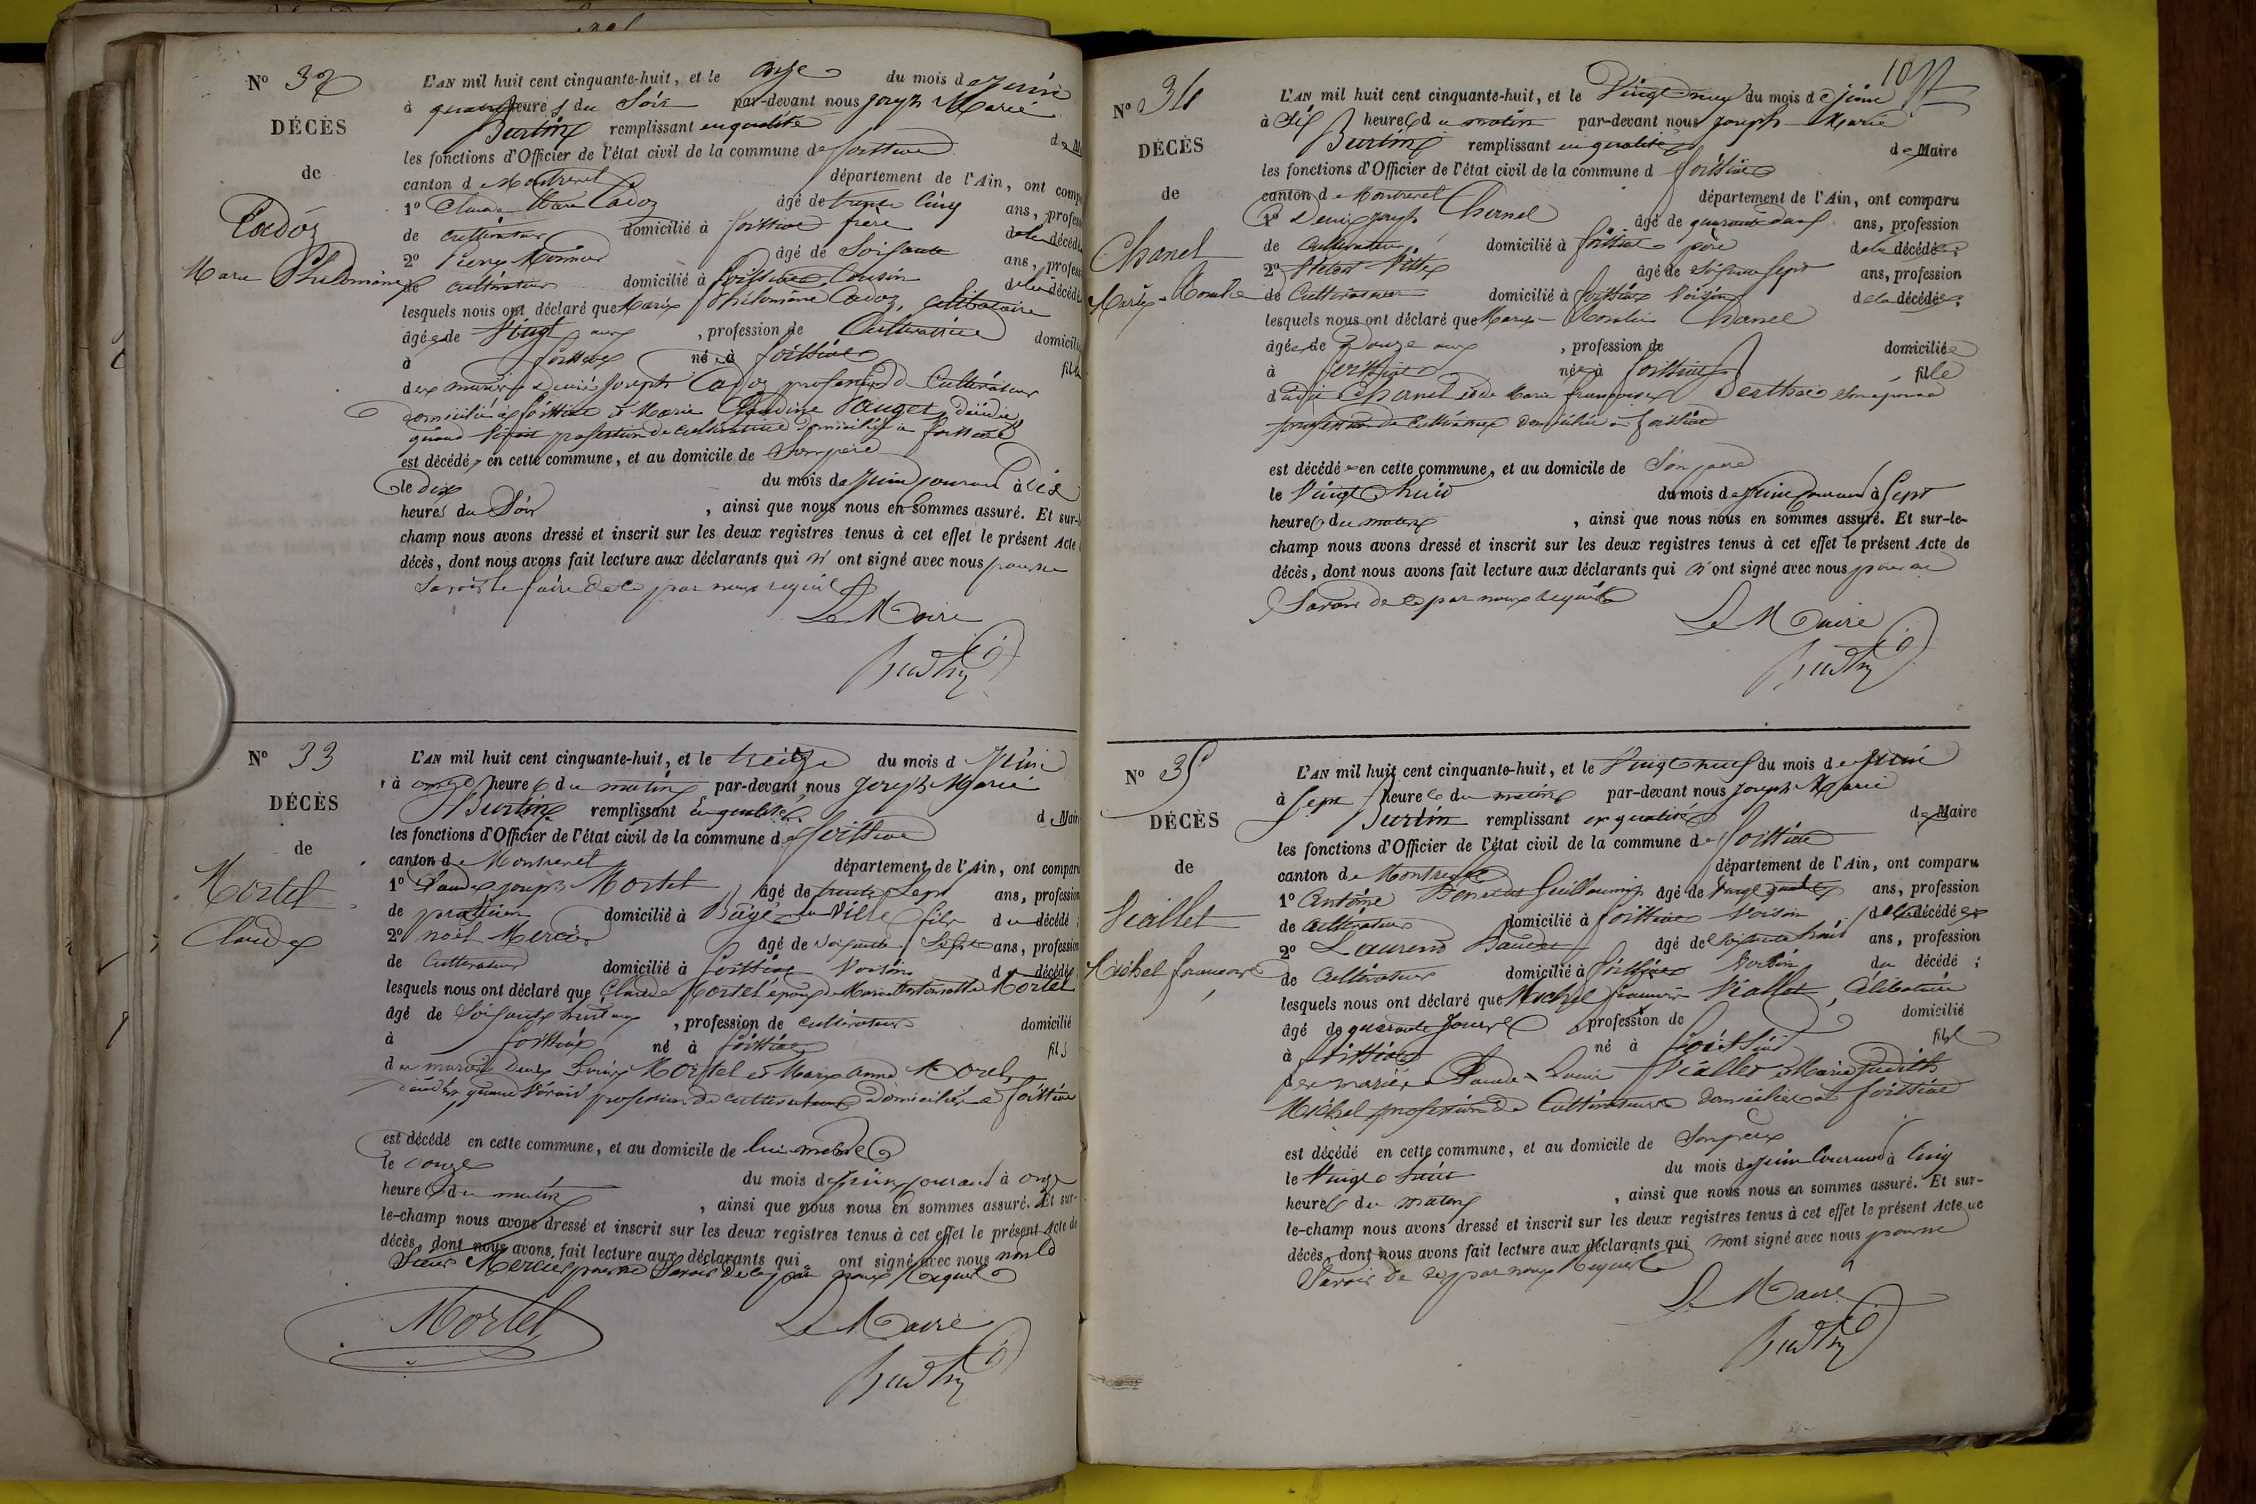 N° 32
DÉCÈS
de
Cadoz
Marie Philomène
L'AN mil huit cent cinquante-huit, et le onze du mois de Juin
à quatre heures du Soir par-devant nous Joseph Marie
Burtin remplissant en qualité de M
les fonctions d'Officier de l'état civil de la commune de foissiat
canton de Montrevel département de l'Ain, ont comp
1° Claude Marie Cadoz âgé de trente Cinq ans, profess
de cultivateur domicilié à foissiat frère de la décédé
2° âgé de Soixante ans, profess
de cultivateur domicilié à foissiat Cousin de la décédé
lesquels nous ont déclaré que Marie Philomène Cadoz, célibataire
âgée de Vingt ans , profession de Cultivatrice domicili
à foissiat née à foissiat fille
des mariés Denis Joseph Cadoz profession de Cultivateur
domicilié à foissiat & Marie Claudine décédée
quand vivait profession de cultivatrice domiciliée à foissiat
est décédée en cette commune, et au domicile de Son père
le dix du mois de Juin Courant à dix
heures du Soir , ainsi que nous nous en sommes assuré. Et sur-l
champ nous avons dressé et inscrit sur les deux registres tenus à cet effet le présent Acte
décès, dont nous avons fait lecture aux déclarants qui n'ont signé avec nous pour ne
Savoir le faire de ce par nous requis
Le Maire
Burtin
N° 33
DÉCÈS
de
Mortel
Claude
L'AN mil huit cent cinquante-huit, et le treize du mois d Juin
à onze heures du matin par-devant nous Joseph Marie
Burtin remplissant en qualité d Mair
les fonctions d'Officier de l'état civil de la commune de foissiat
canton de Montrevel département de l'Ain, ont comparu
1° Claude Joseph Mortel âgé de trente Sept ans, profession
de praticien domicilié à Bâgé la Ville fils du décédé ;
2° noël Mercier âgé de Soixante Sept ans, profession
de Cultivateur domicilié à foissiat Voisin du décédé
lesquels nous ont déclaré que Claude Mortel époux de Marie Mortel
âgé de Soixante huit ans , profession de cultivateur domicilié
à foissiat né à foissiat fils
des mariés Denis Louis Mortel et Marie Anne Morel
décédés quand vivait profession de cultivateurs domiciliés à foissiat
est décédé en cette commune, et au domicile de lui même
le onze du mois de Juin Courant à onze
heures du matin , ainsi que nous nous en sommes assuré. Et sur-
le-champ nous avons dressé et inscrit sur les deux registres tenus à cet effet le présent Acte de
décès, dont nous avons fait lecture aux déclarants qui ont signé avec nous non le
Sieur Mercier pour ne Savoir de ce par nous Requis
Mortel
Le Maire
Burtin
10
N° 34
DÉCÈS
de
Chanel
Marie Rosalie
L'AN mil huit cent cinquante-huit, et le Vingt neuf du mois de juin
à Six heures du matin par-devant nous Joseph Marie
Burtin remplissant en qualité de Maire
les fonctions d'Officier de l'état civil de la commune d foissiat
canton de Montrevel département de l'Ain, ont comparu
1° Denis Joseph Chanel âgé de quarante deux ans, profession
de Cultivateur domicilié à foissiat père de la décédée ;
2° Vincent âgé de Soixante Sept ans, profession
de Cultivateur domicilié à foissiat Voisin de la décédée ;
lesquels nous ont déclaré que Marie Rosalie Chanel
âgée de Douze ans , profession de domiciliée
à foissiat née à foissiat fille
dudit Chanel et de Marie françoise Berthet Son épouse
profession de Cultivateurs domiciliés à foissiat
est décédée en cette commune, et au domicile de Son père
le Vingt huit du mois de Juin Courant à Sept
heures du matin , ainsi que nous nous en sommes assuré. Et sur-le-
champ nous avons dressé et inscrit sur les deux registres tenus à cet effet le présent Acte de
décès, dont nous avons fait lecture aux déclarants qui n'ont signé avec nous pour ne
Savoir de ce par nous requis
Le Maire
Burtin
N° 35
DÉCÈS
de
Viallet
Michel françois
L'AN mil huit cent cinquante-huit, et le Vingt neuf du mois de Juin
à Sept heures du matin par-devant nous Joseph Marie
Burtin remplissant en qualité de Maire
les fonctions d'Officier de l'état civil de la commune de foissiat
canton de Montrevel département de l'Ain, ont comparu
1° Antoine Benoit Guillaumin âgé de Vingt quatre ans, profession
de Cultivateur domicilié à foissiat Voisin du décédé
2° Laurent âgé de Soixante trois ans, profession
de Cultivateur domicilié à foissiat Voisin du décédé ;
lesquels nous ont déclaré que Michel françois Viallet, Célibataire
âgé de quarante profession de domicilié
à foissiat né à foissiat fils
des mariés Claude Louis Viallet & Marie Judith
Michel profession de Cultivateurs domiciliés à foissiat
est décédé en cette commune, et au domicile de Son père
le Vingt huit du mois de Juin Courant à Cinq
heures du matin , ainsi que nous nous en sommes assuré. Et sur-
le-champ nous avons dressé et inscrit sur les deux registres tenus à cet effet le présent Acte de
décès, dont nous avons fait lecture aux déclarants qui n'ont signé avec nous pour ne
Savoir de ce par nous Requis
Le Maire
Burtin